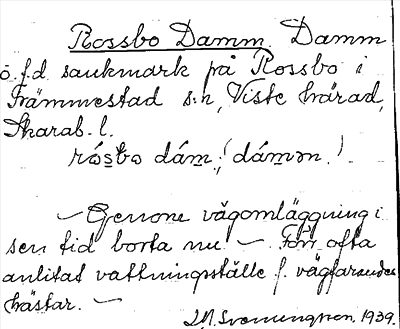 Rossbo Damm. Damm
å.f.d. sankmark på Rossbo i
Främmestad s:n, Viste härad,
Skarab. l.
rósbo dám; (dámən.)
– Genom vägomläggning i
sen tid borta nu. – Förr ofta
anlitat vattningsställe f. vägfarandes
hästar. –
1939.